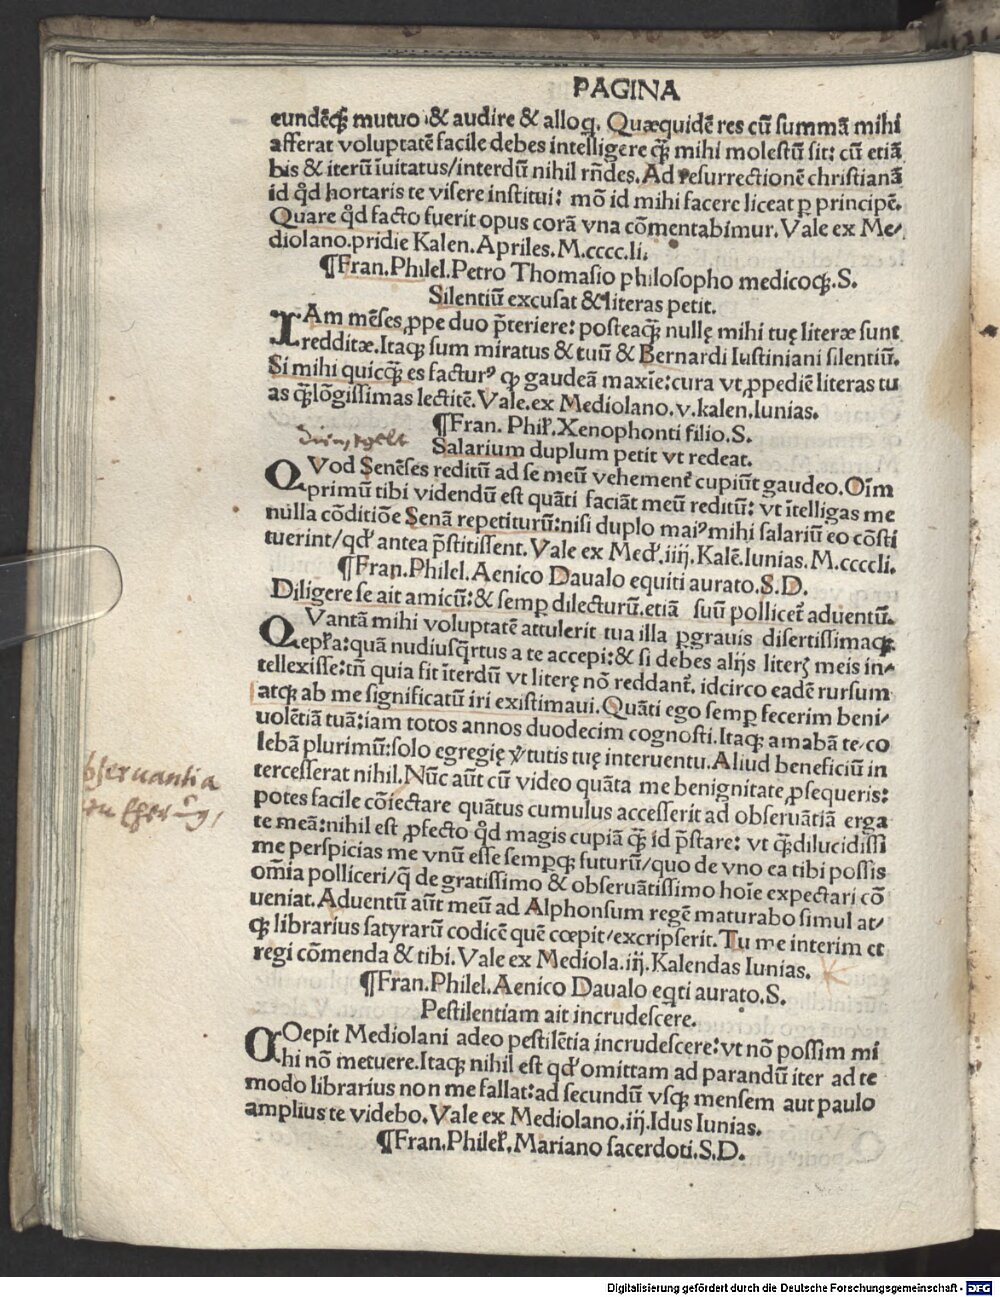 PAGINA
eundē𝔮ꝫ mutuo & audire & alloq. Quæquidē res cū summā mihi
afferat voluptatē facile debes intelligere q̄ꝫ mihi molestū sit: cū etiā
bis & iterū īuitatus/interdū nihil rn̄des. Ad resurrectionē christianā
id qd̓ hortaris te visere institui: mō id mihi facere liceat ꝑ principē.
Quare qd̓ facto fuerit opus corā vna cōmentabimur. Vale ex Me/
diolano.pridie Kalen.Apriles.M.cccc.li.
¶Fran.Philel.Petro Thomasio philosopho medicoqꝫ.S.
Silentiū excusat & literas petit.
IAm mēses ꝓpe duo p̄teriere: posteaq̄ꝫ nullę mihi tuę literæ sunt
redditæ.Itaqꝫ sum miratus & tuū & Bernardi Iustiniani silentiū.
Si mihi quicq̄ꝫ es facturꝰ qꝫ gaudeā maxīe:cura vt ꝓpediē literas tu
as q̄ꝫlōgissimas lectitē.Vale.ex Mediolano.v.kalen.Iunias.
¶Fran. Phil̓.Xenophonti filio.S.
Salarium duplum petit vt redeat.
QVod Senēses reditū ad se meū vehement̓ cupiūt gaudeo.Oīm
primū tibi videndū est quāti faciāt meū reditū: vt ītelligas me
nulla cōditiōe Senā repetiturū:nisi duplo maiꝰ mihi salariū eo cōsti
tuerint/qd̓ antea p̄stitissent. Vale ex Med̓.iiij.Kalē.Iunias.M.ccccli.
¶Fran.Philel.Aenico Daualo equiti aurato.S.D.
Diligere se ait amicū:& semꝑ dilecturū.etiā suū pollicet̓ aduentū.
QVantā mihi voluptatē attulerit tua illa ꝑgrauis disertissimaqꝫ
epl̓a:quā nudiusq̄rtus a te accepi:& si debes alijs literꝭ meis in/
tellexisse:tn̄ quia fit īterdū vt literę nō reddant̓. idcirco eadē rursum
atqꝫ ab me significatū iri existimaui.Quāti ego semꝑ fecerim beni/
uolētiā tuā:iam totos annos duodecim cognosti.Itaqꝫ amabā te/co
lebā plurimū:solo egregię v̓tutis tuę interuentu.Aliud beneficiū in
tercesserat nihil.Nūc aūt cū video quāta me benignitate ꝓsequeris:
potes facile cōiectare quātus cumulus accesserit ad obseruātiā erga
te meā:nihil est ꝓfecto qd̓ magis cupiā q̄ꝫ id p̄stare: vt q̄ꝫdilucidissi
me perspicias me vnū esse sempqꝫ futurū/quo de vno ea tibi possis
om̄ia polliceri/q̄ de gratissimo & obseruātissimo hoīe expectari cō
ueniat.Aduentū aūt meū ad Alphonsum regē maturabo simul at/
qꝫ librarius satyrarū codicē quē cœpit/excripserit.Tu me interim et
regi cōmenda & tibi.Vale ex Mediola.iij.Kalendas Iunias.
¶Fran.Philel.Aenico Daualo eqti aurato.S.
Pestilentiam ait incrudescere.
COepit Mediolani adeo pestilētia incrudescere:vt nō possim mi
hi nō metuere.Itaqꝫ nihil est qd̓ omittam ad parandū iter ad te
modo librarius non me fallat:ad secundū vsqꝫ mensem aut paulo
amplius te videbo.Vale ex Mediolano.iij.Idus Iunias.
¶Fran.Philel̓.Mariano sacerdoti.S.D.
bseruantia
Digitalisierung gefördert durch die Deutsche Forschungsgemeinschaft - DFG